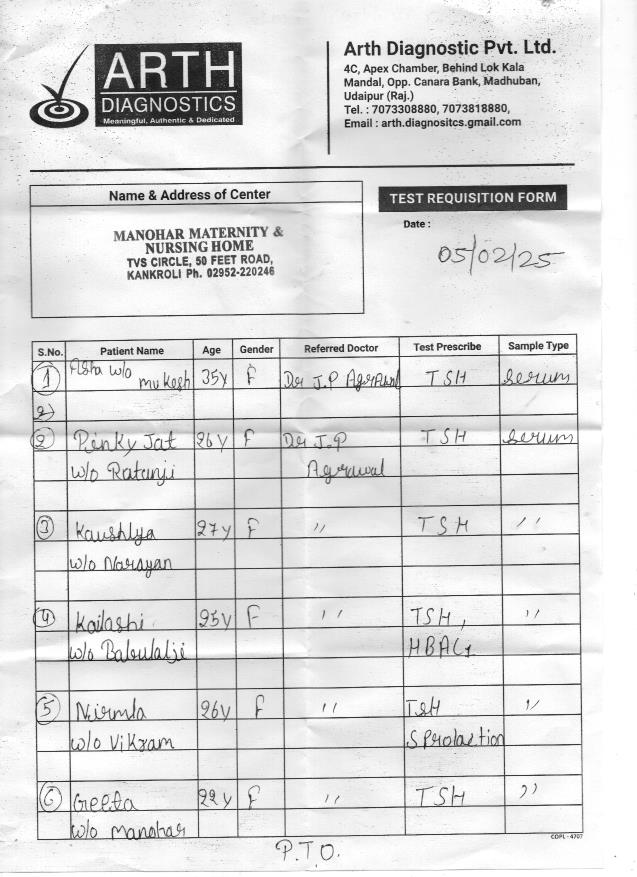 ARTH
DIAGNOSTICS
Meaningful, Authentic & Dedicated
Arth Diagnostic Pvt. Ltd.
4C, Apex Chamber, Behind Lok Kala
Mandal, Opp. Canara Bank, Madhuban,
Udaipur (Raj.)
Tel. : 7073308880, 7073818880,
Email : arth.diagnositcs.gmail.com
Name & Address of Center
MANOHAR MATERNITY &
NURSING HOME
TVS CIRCLE, 50 FEET ROAD,
KANKROLI Ph. 02952-220246
TEST REQUISITION FORM
Date :
05/02/25
S.No. Patient Name Age Gender Referred Doctor Test Prescribe Sample Type
1 Asha w/o mukesh 35y F Dr J.P Agrawal TSH Serum
2)
2 Pinky Jat 26y F Dr J.P TSH Serum
w/o Ratanji Agrawal
3 Kaushlya 27y F " TSH "
w/o Narayan
4 Kailashi 25y F " TSH, "
w/o Babulalji HBAC1
5 Nirmla 26y F " TSH "
w/o Vikram S Prolaction
6 Geeta 22y F " TSH "
w/o Manohar
COPL - 4707
P.T.O.